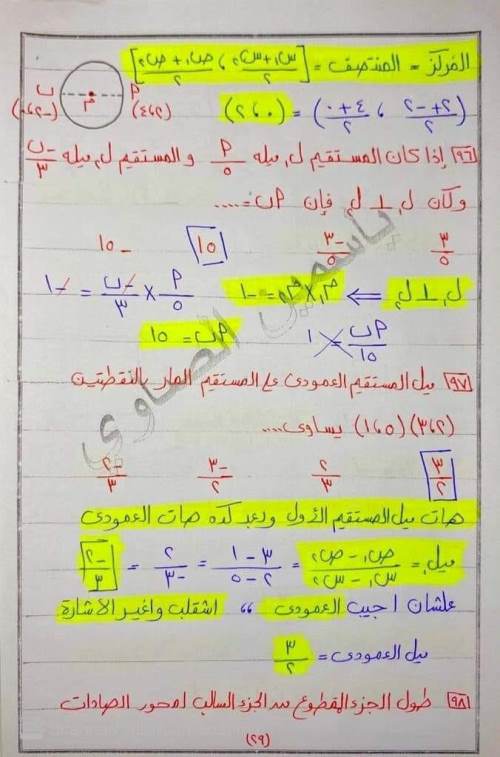 المركز = المنتصف = [س١+س٢/٢ ، ص١+ص٢/٢]
(٢+-٢/٢ ، ٤+٠/٢) = (٠ ، ٢)
ب م P
(-٢ ، ٠) (٢ ، ٤)
٩٦ إذا كان المستقيم ل١ ميله P/٥ والمستقيم ل٢ ميله -ب/٣
وكان ل١ ⊥ ل٢ فإن P ب = ....
٣/٥ -٣/٥ ١٥ -١٥
ل١ ⊥ ل٢ ⇐ م١ × م٢ = -١ P/٥ × -ب/٣ = -١
P ب/١٥ = ١ P ب = ١٥
٩٧ ميل المستقيم العمودى على المستقيم المار بالنقطتين
(٢ ، ٣) (٥ ، ١) يساوى ....
٣/٢ ٢/٣ -٣/٢ -٢/٣
هات ميل المستقيم الأول وبعد كده هات العمودى
ميل١ = ص١ - ص٢/س١ - س٢ = ٣ - ١/٢ - ٥ = ٢/-٣ = -٢/٣
علشان اجيب العمودى ،، اشقلب واغير الاشارة
ميل العمودى = ٣/٢
٩٨ طول الجزء المقطوع من الجزء السالب لمحور الصادات
(٢٩)
ياسمين الصاوي